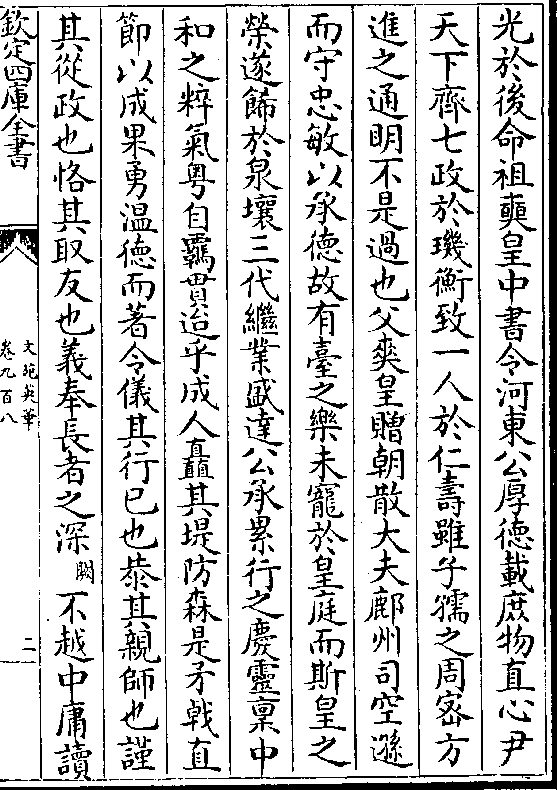 光於後命祖奭皇中書令河東公厚德載庶物直心尹
天下齊七政於璣衡致一人於仁壽雖子孺之周宻方
進之通明不是過也父爽皇贈朝散大夫鄜州司空遜
而守忠敏以承德故有臺之樂未寵於皇庭而斯皇之
榮遂歸於泉壤三代繼業盛達公承累行之慶靈稟中
和之粹氣粤自羈貫迨乎成人矗其堤防森是矛戟直
節以成果勇温德而著令儀其行已也恭其親師也謹
其從政也恪其取友也義奉長者之深闕不越中庸讀
欽定四庫全書
文苑英華
卷九百八
二